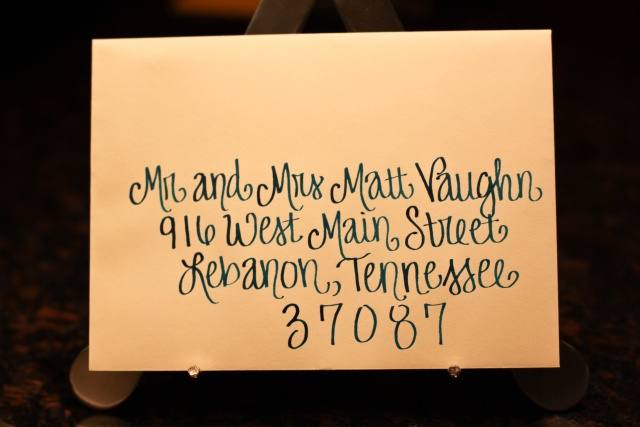 Mr and Mrs Matt Vaughn
916 West Main Street
Lebanon, Tennessee
37087